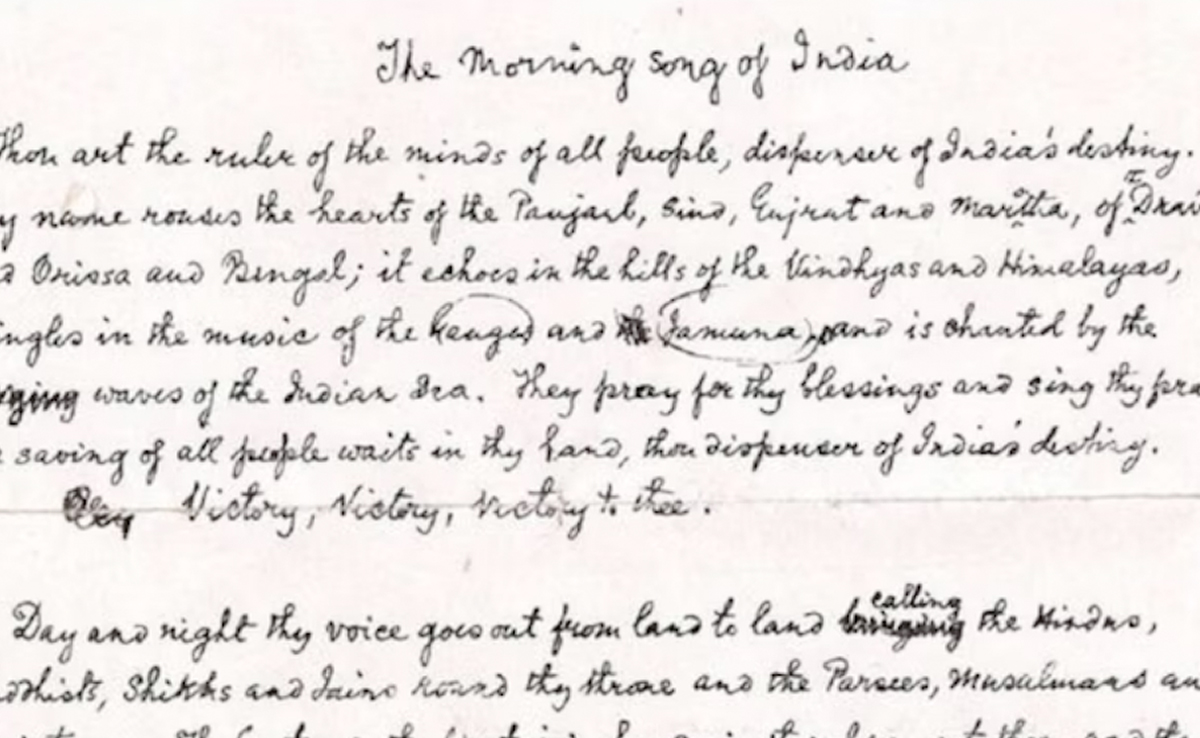 The Morning song of India
Thou art the ruler of the minds of all people, dispenser of India's destiny.
y name rouses the hearts of the Panjaub, Sind, Gujrat and Maratha, of Drav
d Orissa and Bengal; it echoes in the hills of the Vindhyas and Himalayas,
ingles in the music of the Ganges and Jamuna, and is chanted by the
rging waves of the Indian Sea. They pray for thy blessings and sing thy pra
e saving of all people waits in thy hand, thou dispenser of India's destiny.
Victory, Victory, Victory to thee.
calling
Day and night thy voice goes out from land to land bringing the Hindus,
ddhists, Shikhs and Jains round thy throne and the Parsees, Musulmans an